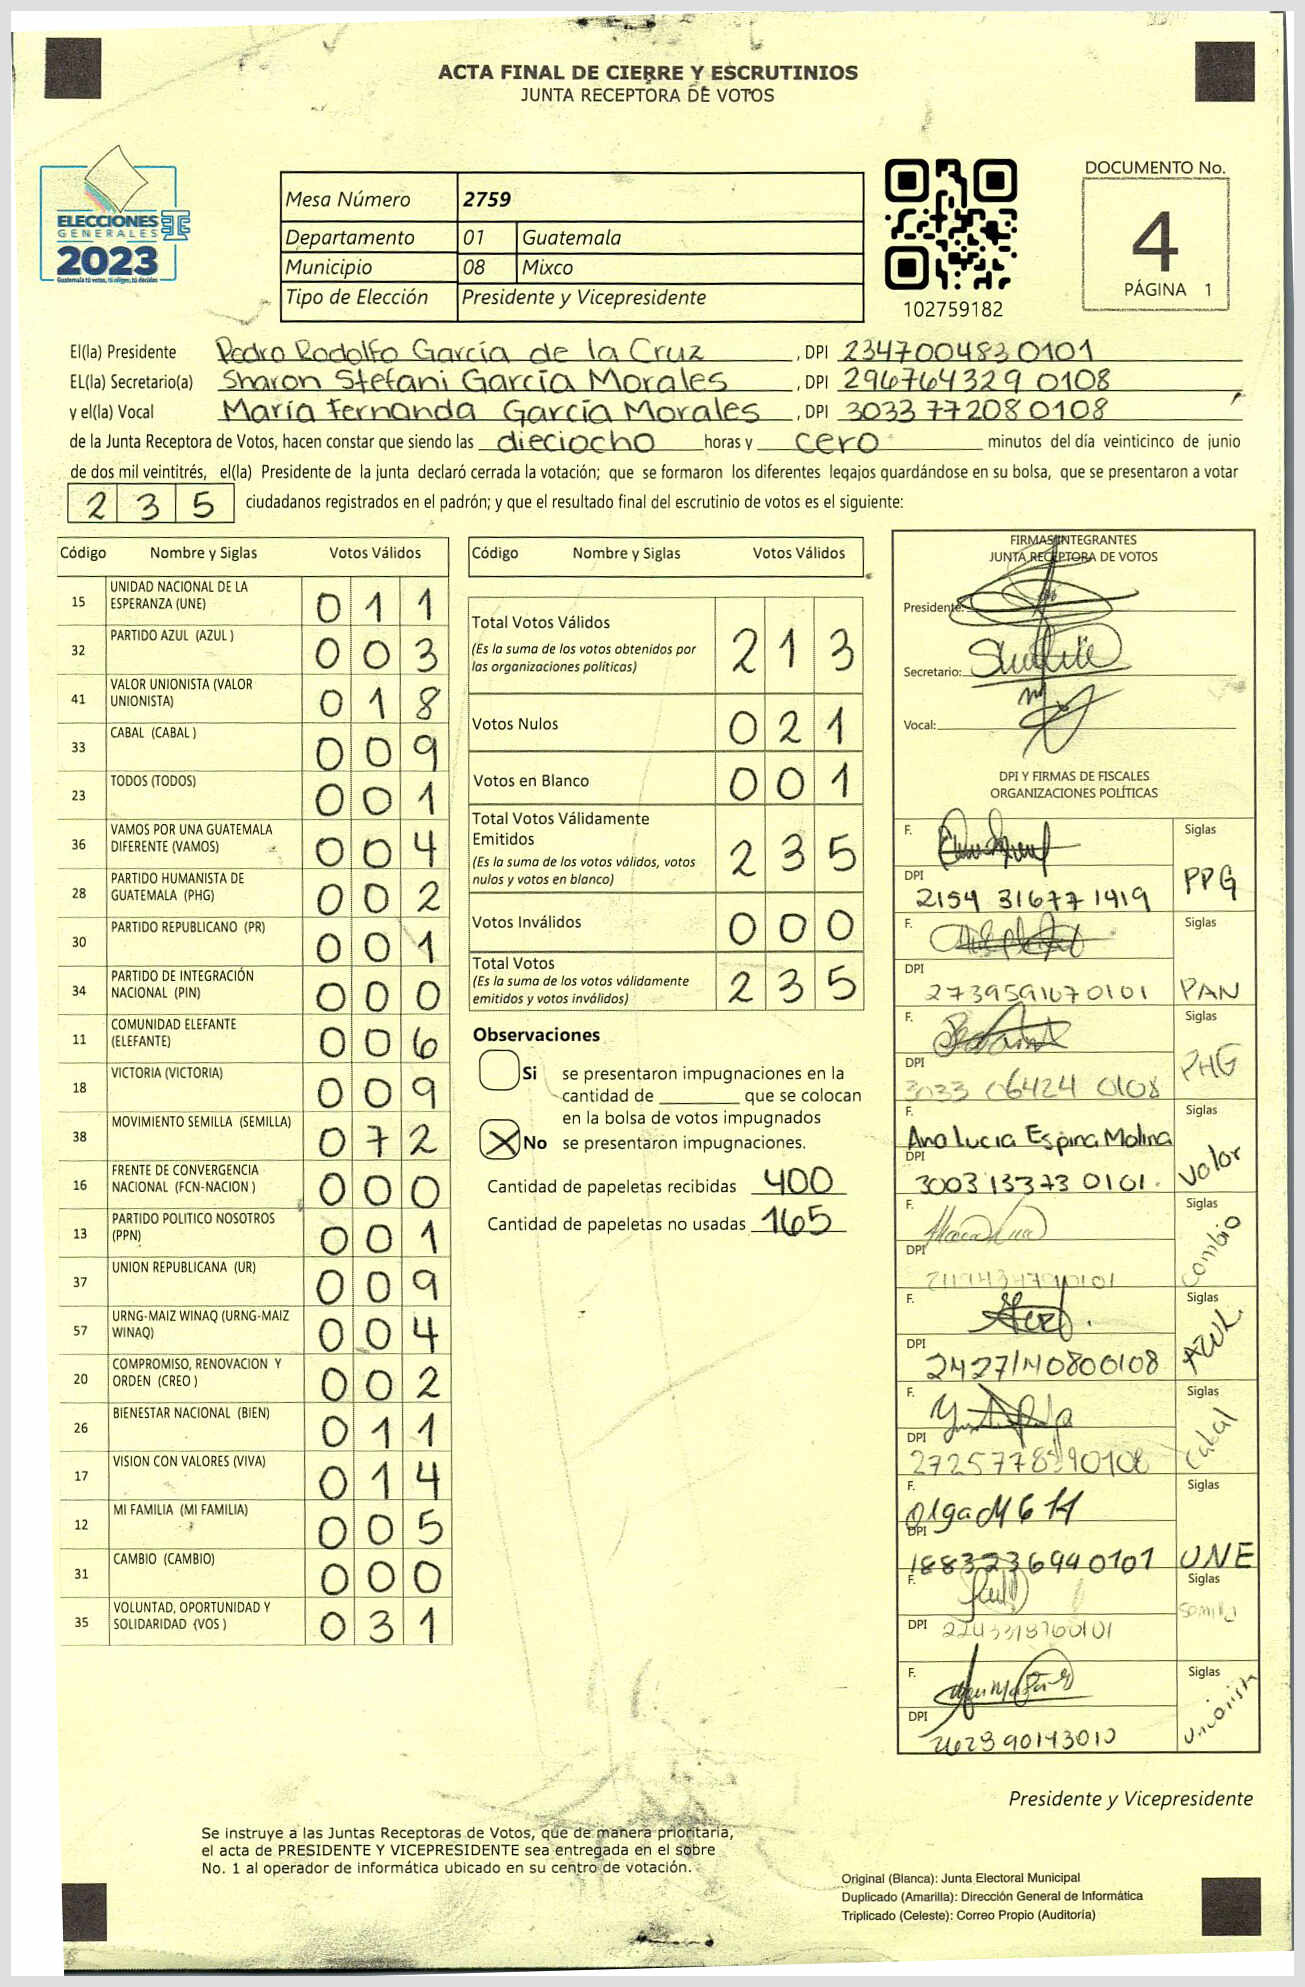 ACTA FINAL DE CIERRE Y ESCRUTINIOS
JUNTA RECEPTORA DE VOTOS
ELECCIONES
GENERALES
2023
Guatemala tú votas, tú eliges, tú decides
Mesa Número 2759
Departamento 01 Guatemala
Municipio 08 Mixco
Tipo de Elección Presidente y Vicepresidente
102759182
DOCUMENTO No.
4
PÁGINA 1
El(la) Presidente Pedro Rodolfo García de la Cruz, DPI 2347004830101
EL(la) Secretario(a) Sharon Stefani García Morales, DPI 296764329 0108
y el(la) Vocal María Fernanda García Morales, DPI 3033 772080108
de la Junta Receptora de Votos, hacen constar que siendo las dieciocho horas y cero minutos del día veinticinco de junio
de dos mil veintitrés, el(la) Presidente de la junta declaró cerrada la votación; que se formaron los diferentes legajos guardándose en su bolsa, que se presentaron a votar
2 3 5 ciudadanos registrados en el padrón; y que el resultado final del escrutinio de votos es el siguiente:
Código Nombre y Siglas Votos Válidos
15 UNIDAD NACIONAL DE LA ESPERANZA (UNE) 0 1 1
32 PARTIDO AZUL (AZUL ) 0 0 3
41 VALOR UNIONISTA (VALOR UNIONISTA) 0 1 8
33 CABAL (CABAL ) 0 0 9
23 TODOS (TODOS) 0 0 1
36 VAMOS POR UNA GUATEMALA DIFERENTE (VAMOS) 0 0 4
28 PARTIDO HUMANISTA DE GUATEMALA (PHG) 0 0 2
30 PARTIDO REPUBLICANO (PR) 0 0 1
34 PARTIDO DE INTEGRACIÓN NACIONAL (PIN) 0 0 0
11 COMUNIDAD ELEFANTE (ELEFANTE) 0 0 6
18 VICTORIA (VICTORIA) 0 0 9
38 MOVIMIENTO SEMILLA (SEMILLA) 0 7 2
16 FRENTE DE CONVERGENCIA NACIONAL (FCN-NACION ) 0 0 0
13 PARTIDO POLITICO NOSOTROS (PPN) 0 0 1
37 UNION REPUBLICANA (UR) 0 0 9
57 URNG-MAIZ WINAQ (URNG-MAIZ WINAQ) 0 0 4
20 COMPROMISO, RENOVACION Y ORDEN (CREO ) 0 0 2
26 BIENESTAR NACIONAL (BIEN) 0 1 1
17 VISION CON VALORES (VIVA) 0 1 4
12 MI FAMILIA (MI FAMILIA) 0 0 5
31 CAMBIO (CAMBIO) 0 0 0
35 VOLUNTAD, OPORTUNIDAD Y SOLIDARIDAD (VOS ) 0 3 1
Código Nombre y Siglas Votos Válidos
Total Votos Válidos 2 1 3
(Es la suma de los votos obtenidos por
las organizaciones políticas)
Votos Nulos 0 2 1
Votos en Blanco 0 0 1
Total Votos Válidamente
Emitidos 2 3 5
(Es la suma de los votos válidos, votos
nulos y votos en blanco)
Votos Inválidos 0 0 0
Total Votos 2 3 5
(Es la suma de los votos válidamente
emitidos y votos inválidos)
Observaciones
Si se presentaron impugnaciones en la
cantidad de ________ que se colocan
en la bolsa de votos impugnados
X No se presentaron impugnaciones.
Cantidad de papeletas recibidas 400
Cantidad de papeletas no usadas 165
FIRMAS INTEGRANTES
JUNTA RECEPTORA DE VOTOS
Presidente:
Secretario:
Vocal:
DPI Y FIRMAS DE FISCALES
ORGANIZACIONES POLÍTICAS
F. Siglas
DPI 2154 31677 1419 PPG
F. Siglas
DPI 2739591670101 PAN
F. Siglas
DPI 3033 06424 0108 PHG
F. Ana Lucia Espina Molina Siglas
DPI 3003 13373 0101. Valor
F. Siglas
DPI Cambio
F. Siglas
DPI AZUL
F. Siglas
DPI Cabal
F. Olga M G H Siglas
DPI 1883236940101 UNE
F. Siglas
DPI Semilla
F. Siglas
DPI Unionista
Presidente y Vicepresidente
Se instruye a las Juntas Receptoras de Votos, que de manera prioritaria,
el acta de PRESIDENTE Y VICEPRESIDENTE sea entregada en el sobre
No. 1 al operador de informática ubicado en su centro de votación.
Original (Blanca): Junta Electoral Municipal
Duplicado (Amarilla): Dirección General de Informática
Triplicado (Celeste): Correo Propio (Auditoría)